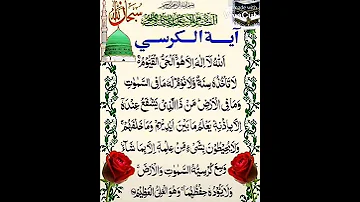 made with
سبحان الله
آية الكرسي
اَللهُ لَآ اِلٰهَ اِلَّا هُوَ اَلْحَيُّ الْقَيُّوْمُ
لَا تَأْخُذُهٗ سِنَةٌ وَّلَا نَوْمٌ لَهٗ مَا فِي السَّمٰوٰتِ
وَمَا فِي الْاَرْضِ مَنْ ذَا الَّذِيْ يَشْفَعُ عِنْدَهٗ
اِلَّا بِاِذْنِهٖ يَعْلَمُ مَا بَيْنَ اَيْدِيْهِمْ وَمَا خَلْفَهُمْ
وَلَا يُحِيْطُوْنَ بِشَيْءٍ مِّنْ عِلْمِهٖ اِلَّا بِمَا شَآءَ
وَسِعَ كُرْسِيُّهُ السَّمٰوٰتِ وَالْاَرْضَ
وَلَا يَئُوْدُهٗ حِفْظُهُمَا وَهُوَ الْعَلِيُّ الْعَظِيْمُ